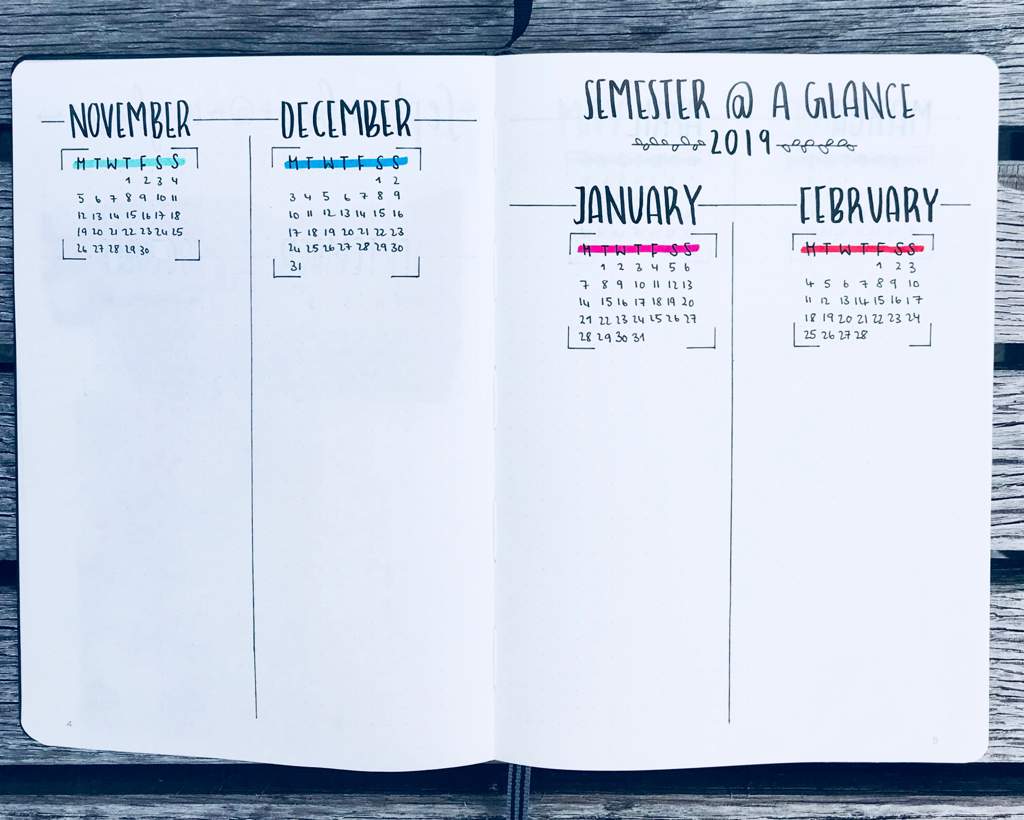 NOVEMBER
M T W T F S S
1 2 3 4
5 6 7 8 9 10 11
12 13 14 15 16 17 18
19 20 21 22 23 24 25
26 27 28 29 30
4
DECEMBER
M T W T F S S
1 2
3 4 5 6 7 8 9
10 11 12 13 14 15 16
17 18 19 20 21 22 23
24 25 26 27 28 29 30
31
SEMESTER @ A GLANCE
2019
JANUARY
M T W T F S S
1 2 3 4 5 6
7 8 9 10 11 12 13
14 15 16 17 18 19 20
21 22 23 24 25 26 27
28 29 30 31
FEBRUARY
M T W T F S S
1 2 3
4 5 6 7 8 9 10
11 12 13 14 15 16 17
18 19 20 21 22 23 24
25 26 27 28
5